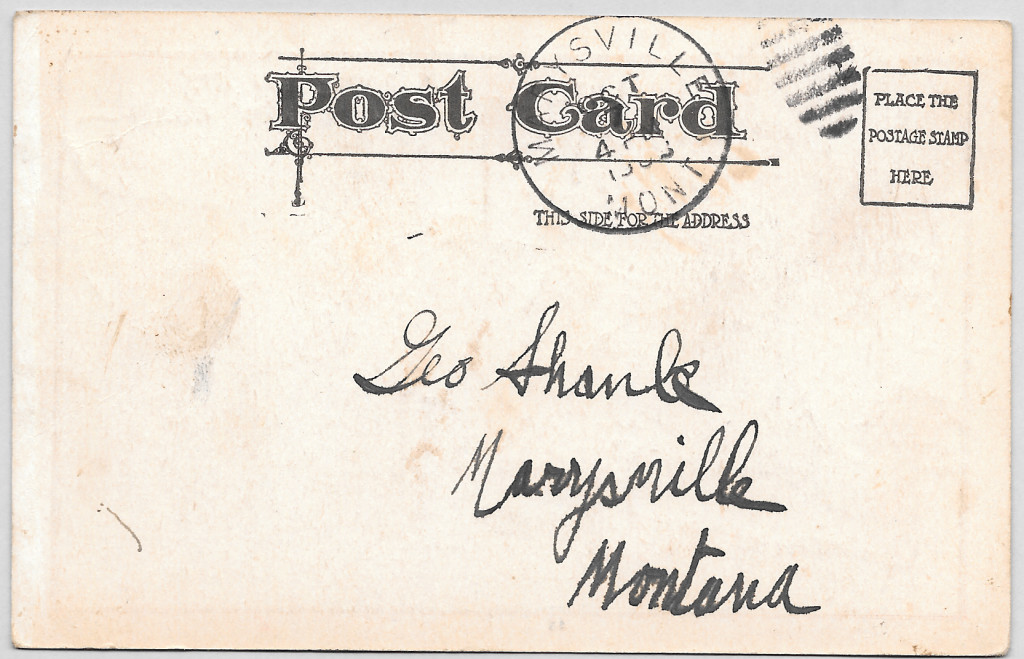 Post Card
MARYSVILLE
MONT.
PLACE THE
POSTAGE STAMP
HERE
THIS SIDE FOR THE ADDRESS
Geo Shanks
Marysville
Montana